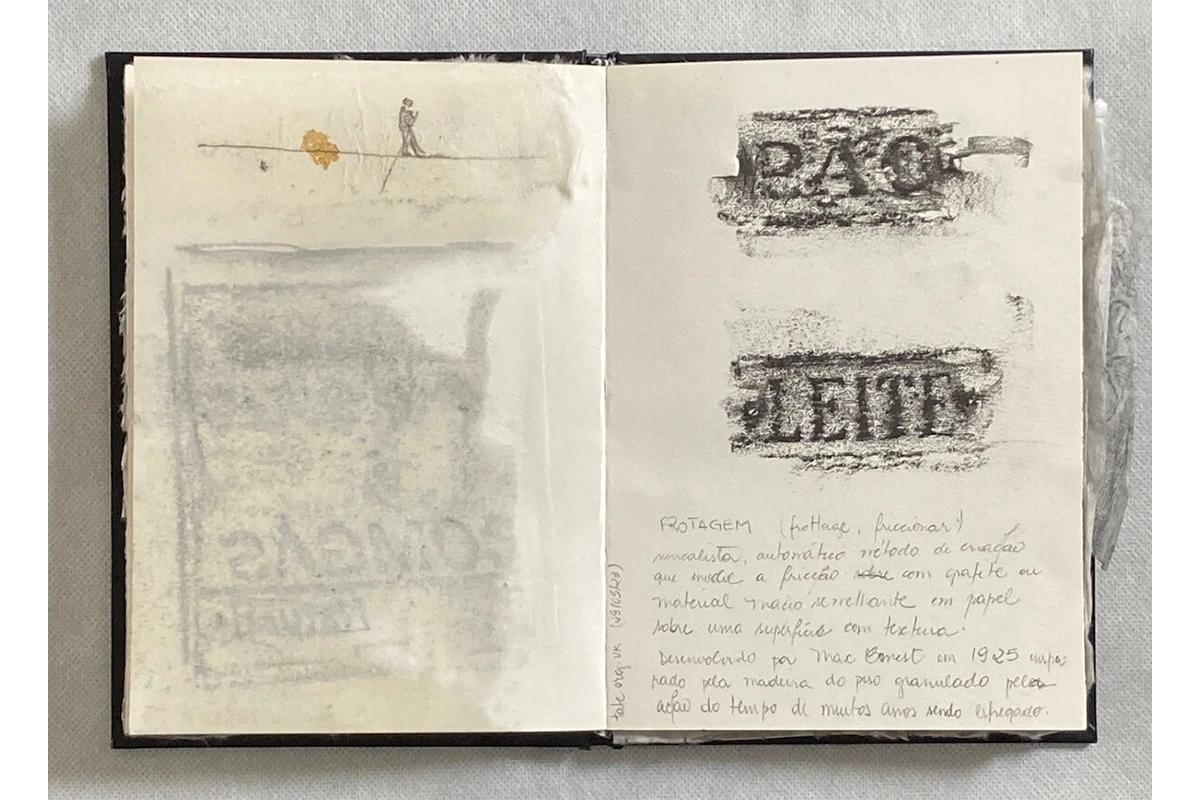 PÃO
LEITE
FROTAGEM (frottage, friccionar)
surrealista, automático método de criação
que involve a fricção sobre com grafite ou
material macio semelhante em papel
sobre uma superfície com textura.
Desenvolvido por Max Ernest em 1925 inspi
rado pela madeira do piso granulado pela
ação do tempo de muitos anos sendo esfregado.
tate.org.uk